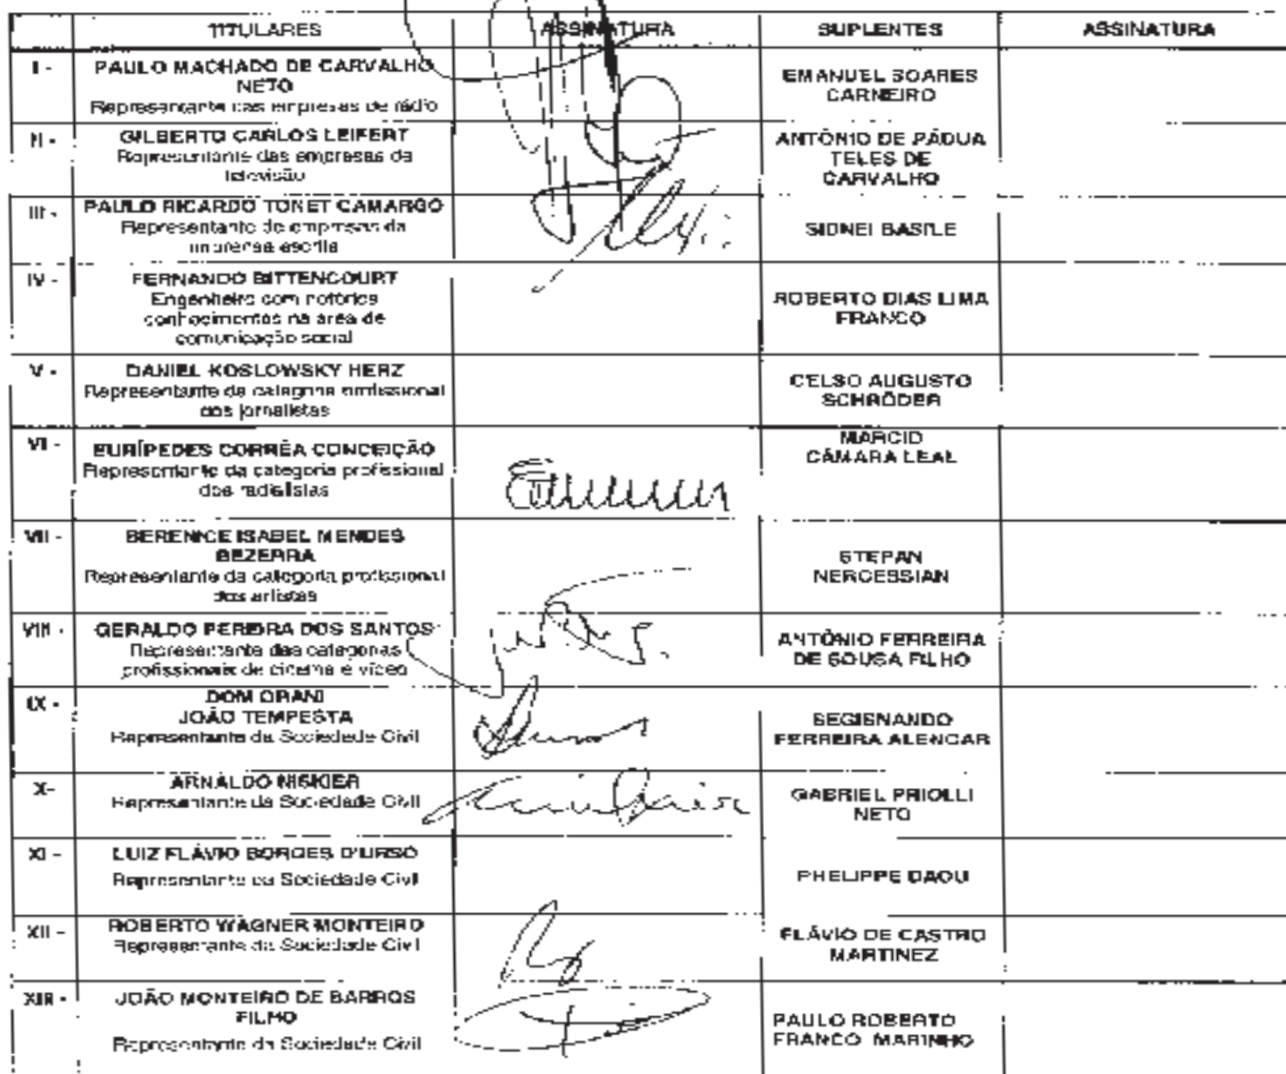 TITULARES ASSINATURA SUPLENTES ASSINATURA
I - PAULO MACHADO DE CARVALHO NETO
Representante das empresas de rádio
EMANUEL SOARES
CARNEIRO
II - GILBERTO CARLOS LEIFERT
Representante das empresas da
televisão
ANTÔNIO DE PÁDUA
TELES DE
CARVALHO
III - PAULO RICARDO TONET CAMARGO
Representante de empresas da
imprensa escrita
SIDNEI BASILE
IV - FERNANDO BITTENCOURT
Engenheiro com notórios
conhecimentos na área de
comunicação social
ROBERTO DIAS LIMA
FRANCO
V - DANIEL KOSLOWSKY HERZ
Representante da categoria profissional
dos jornalistas
CELSO AUGUSTO
SCHRÖDER
VI - EURÍPEDES CORRÊA CONCEIÇÃO
Representante da categoria profissional
dos radialistas
MARCIO
CÂMARA LEAL
VII - BERENICE ISABEL MENDES
BEZERRA
Representante da categoria profissional
dos artistas
STEPAN
NERCESSIAN
VIII - GERALDO PEREIRA DOS SANTOS
Representante das categorias
profissionais de cinema e vídeo
ANTÔNIO FERREIRA
DE SOUSA FILHO
IX - DOM ORANI
JOÃO TEMPESTA
Representante da Sociedade Civil
SEGISNANDO
FERREIRA ALENCAR
X- ARNALDO NISKIER
Representante da Sociedade Civil
GABRIEL PRIOLLI
NETO
XI - LUIZ FLÁVIO BORGES D'URSO
Representante da Sociedade Civil
PHELIPPE DAOU
XII - ROBERTO WAGNER MONTEIRO
Representante da Sociedade Civil
FLÁVIO DE CASTRO
MARTINEZ
XIII - JOÃO MONTEIRO DE BARROS
FILHO
Representante da Sociedade Civil
PAULO ROBERTO
FRANCO MARINHO